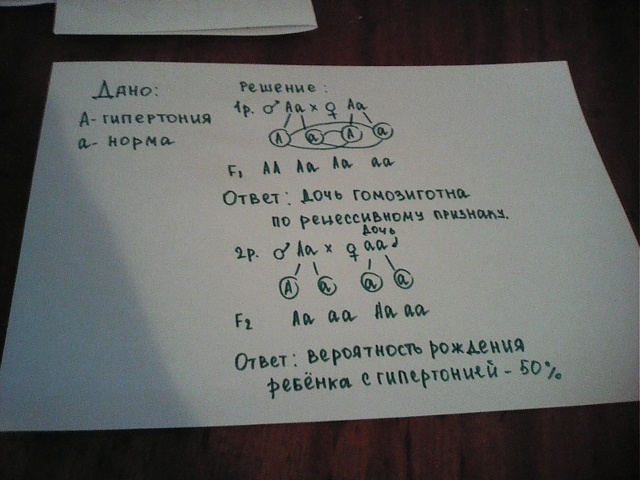 Дано:
А - гипертония
а - норма
Решение:
1р. ♂ Аа × ♀ Аа
А а А а
F₁ АА Аа Аа аа
Ответ: дочь гомозиготна
по рецессивному признаку.
дочь
2р. ♂ Аа × ♀ аа
А а а а
F₂ Аа аа Аа аа
Ответ: вероятность рождения
ребёнка с гипертонией - 50%